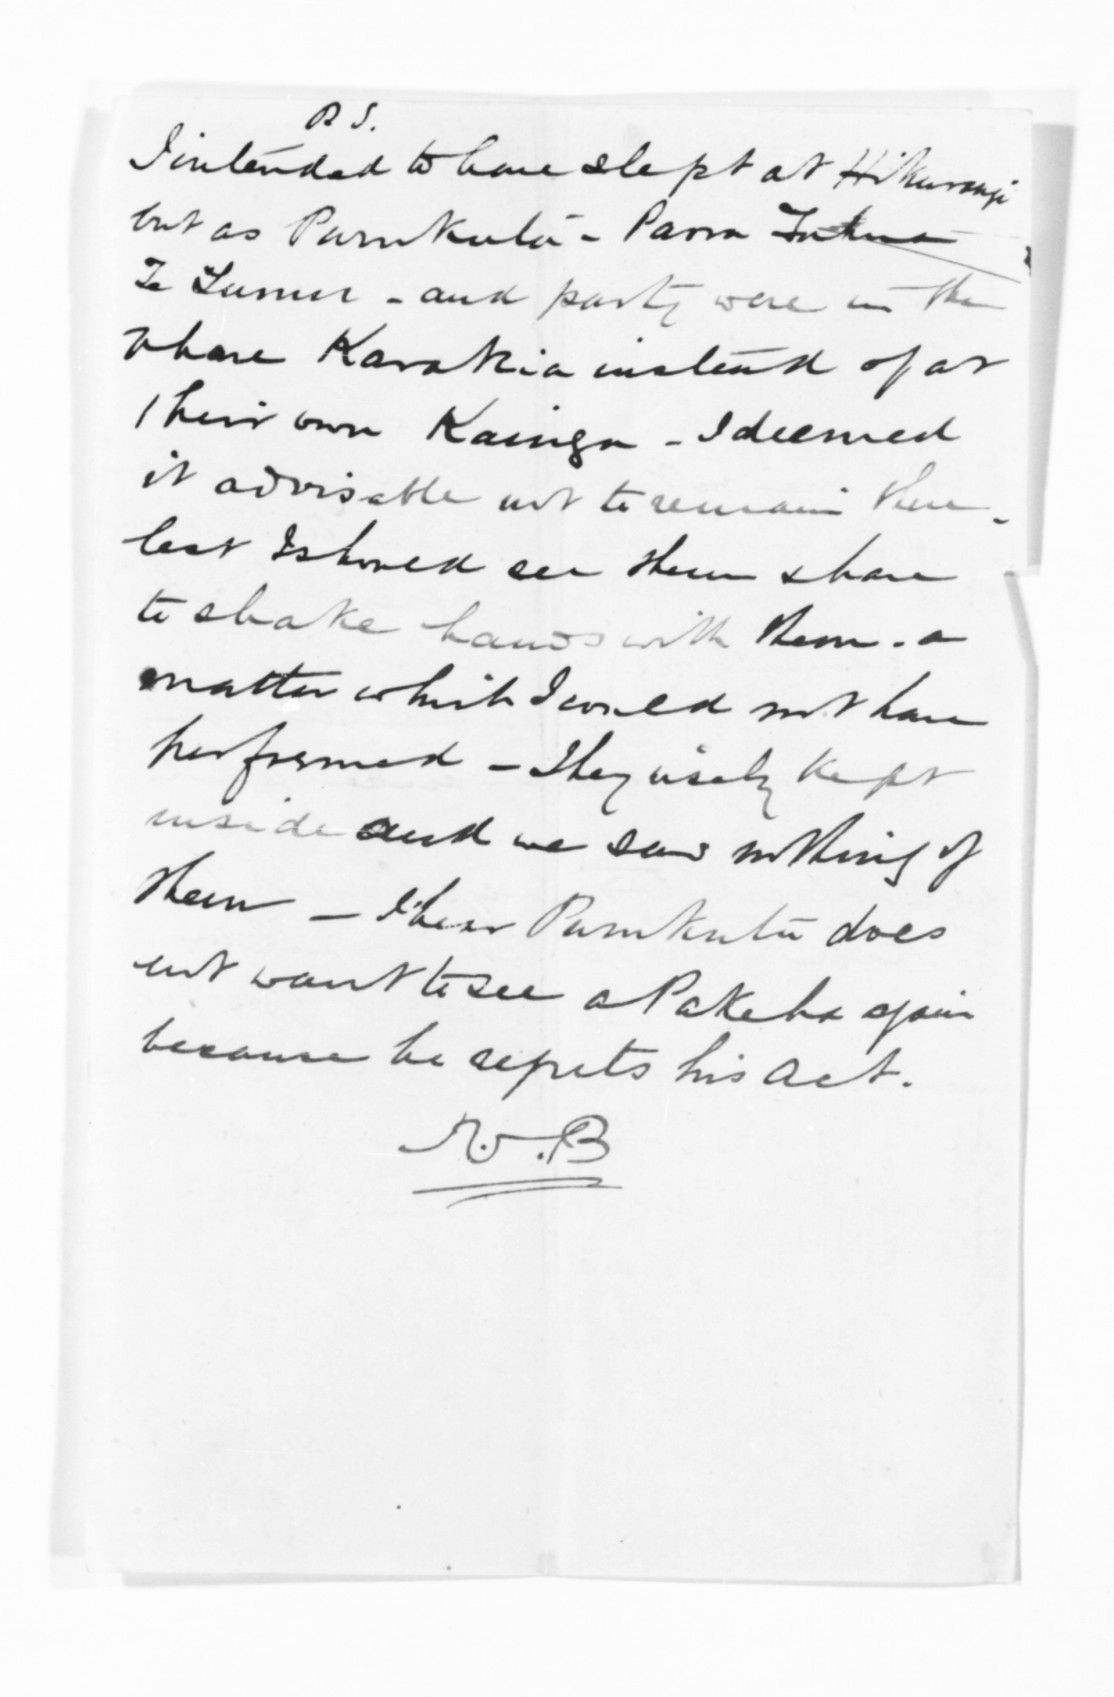 P S.
I intended to have slept at Hikurangi
but as Purukutu - Parra
Te Tumu - and party were in the
whare Karakia instead of at
their own Kainga - I deemed
it advisable not to remain there -
lest I should see them & have
to shake hands with them - a
matter which I would not have
performed - They wisely kept
inside and we saw nothing of
them - I hear Purukutu does
not want to see a Pakeha again
because he regrets his act.
B